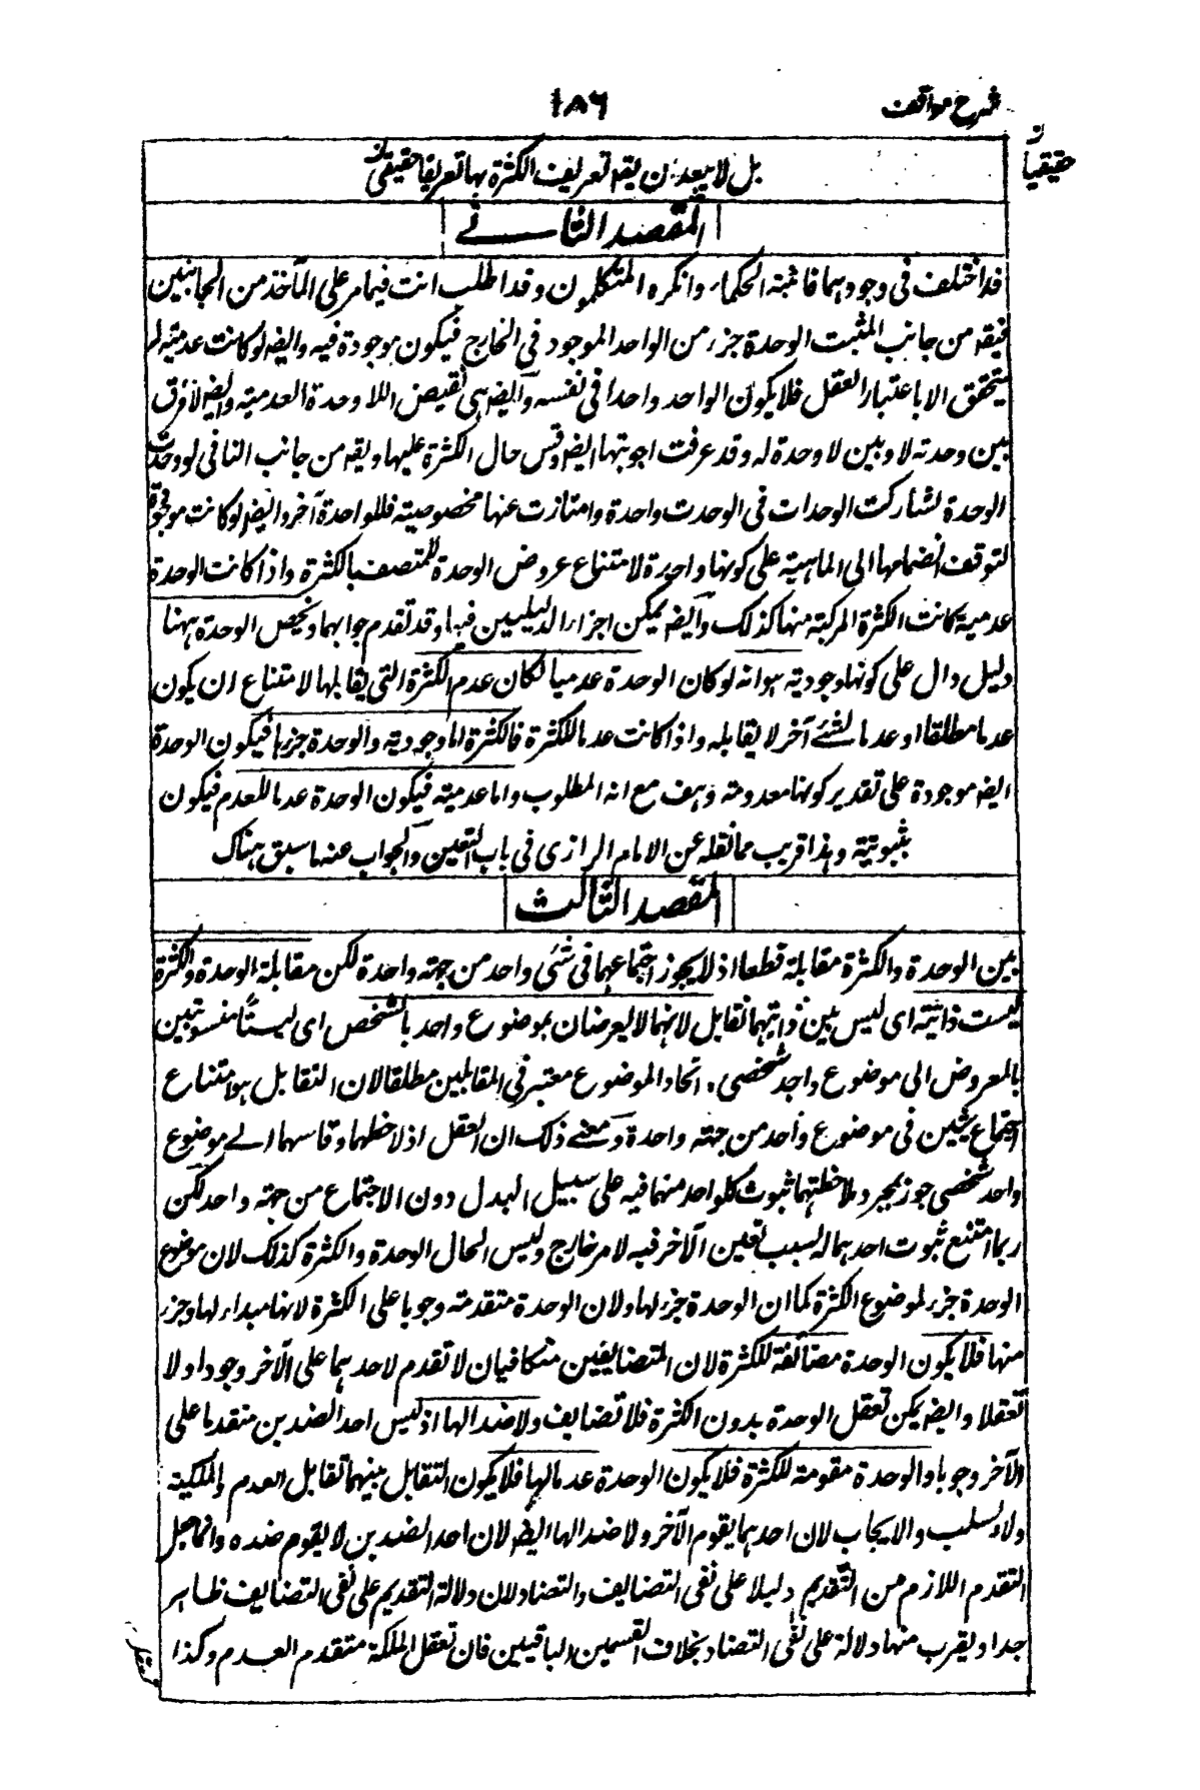 شرح مواقف
١٨٦
حقيقيا
بل لا يبعد ان يقه تعريف الكثرة بها تعريفا حقيقيا
المقصد الثانے
قد اختلف فى وجودهما فاثبته الحكماء وانكره المتكلمون وقد اطلعت انت فيما مر على المآخذ من الجانبين
فيقه من جانب المثبت الوحدة جزء من الواحد الموجود فى الخارج فيكون موجودة فيه وايضه لو كانت عدمية لم
يتحقق الا باعتبار العقل فلا يكون الواحد واحدا فى نفسه وايضه هى نقيض اللا وحدة العدمية وايضه لا فرق
بين وحدته لا وبين لا وحدة له وقد عرفت اجوبتها ايضه وقس حال الكثرة عليها ويقه من جانب النافى لو وجدت
الوحدة لشاركت الوحدات فى الوحدت واحدة وامتازت عنها بخصوصية فللواحدة آخر وايضه لو كانت موجودة
لتوقف انضمامها الى الماهية على كونها واحدة لامتناع عروض الوحدة للمتصف بالكثرة واذا كانت الوحدة
عدمية كانت الكثرة المركبة منها كذلك وايضه يمكن اجراء الدليلين فيها وقد تقدم جوابهما ويخص الوحدة ههنا
دليل دال على كونها وجودية هو انه لو كان الوحدة عدميا لكان عدم الكثرة التى يقابلها لامتناع ان يكون
عدما مطلقا او عدما لشئے آخر لا يقابله واذا كانت عدما للكثرة فالكثرة اما وجودية والوحدة جزءها فيكون الوحدة
ايضه موجودة على تقدير كونها معدومة وهف مع انه المطلوب واما عدمية فيكون الوحدة عدما للعدم فيكون
ثبوتية وهذا قريب مما نقله عن الامام الرازى فى باب التعين والجواب عنه ما سبق هناك
المقصد الثالث
بين الوحدة والكثرة مقابلة قطعا اذ لا يجوز اجتماعهما فى شئى واحد من جهة واحدة لكن مقابلة الوحدة والكثرة
ليست ذاتية اى ليس بين ذاتيهما تقابل لانهما لا يعرضان بموضوع واحد بالشخص اى ليستا منسوبتين
بالعروض الى موضوع واحد شخصى و اتحاد الموضوع معتبر فى المقابلين مطلقا لان التقابل هو امتناع
اجتماع شيئين فى موضوع واحد من جهة واحدة ومعنے ذلك ان العقل اذ لاحظهما وقاسهما الے موضوع
واحد شخصى جوز بمجرد ملاحظتهما ثبوت كل واحد منهما فيه على سبيل البدل دون الاجتماع من جهة واحد لكن
ربما امتنع ثبوت احدهما له بسبب تعين الآخر فيه لامر خارج وليس الحال الوحدة والكثرة كذلك لان موضوع
الوحدة جزء لموضوع الكثرة كما ان الوحدة جزء لها ولان الوحدة متقدمة وجوبا على الكثرة لانها مبداء لها وجزء
منها فلا يكون الوحدة مضائفة للكثرة لان المتضايفين متكافيان لا تقدم لاحدهما على الآخر وجودا ولا
تعقلا وايضه يمكن تعقل الوحدة بدون الكثرة فلا تضايف ولا ضد الها اذ ليس احد الضدين متقدما على
الآخر وجوبا والوحدة مقومة للكثرة فلا يكون الوحدة عدما لها فلا يكون التقابل بينهما تقابل العدم والملكية
ولا السلب والايجاب لان احدهما يقوم الآخر ولا ضد الها ايضه لان احد الضدين لا يقوم ضده وانما جعل
التقدم اللازم من التقديم دليلا على نفى التضايف والتضاد لان دلالة التقديم على نفى التضايف ظاهر
جدا ويقرب منها دلالة على نفى التضاد بخلاف القسمين الباقيين فان تعقل الملكة متقدم العدم وكذا